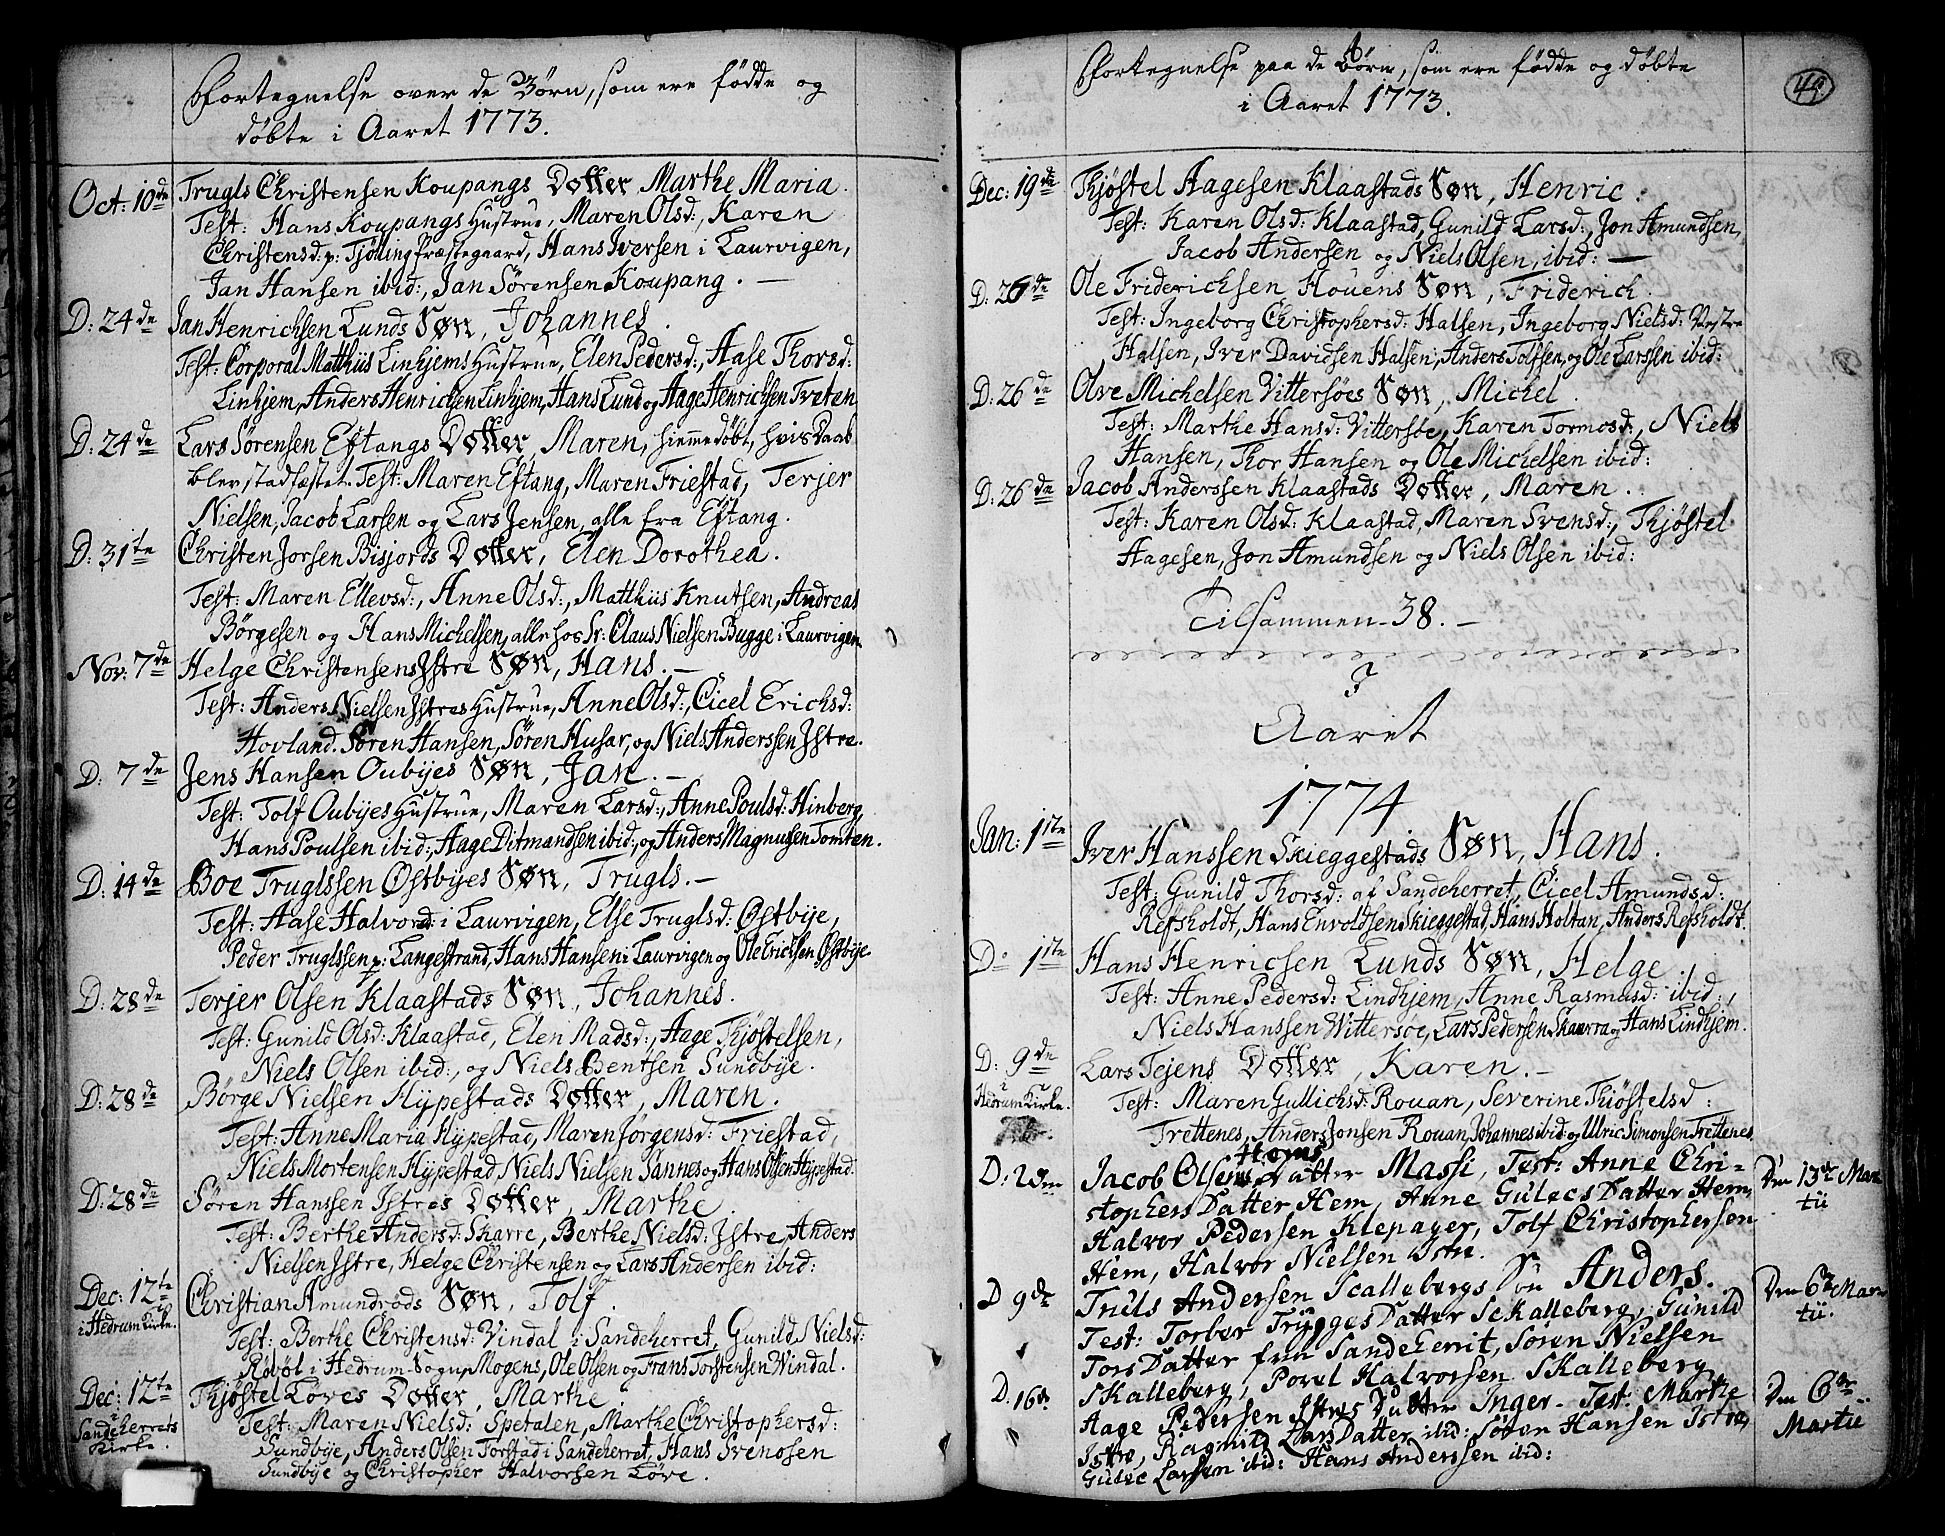 Fortegnelse over de Børn, som ere fødde og
døbte i Aaret 1773.
Oct: 10de Trugls Christensen Koupangs Dotter Marthe Maria.
Test: Hans Koupangs Hustrue, Maren Olsd:, Karen
Christensd: p: Tjølling Præstegaard, Hans Iversen i Laurvigen,
Jan Hansen ibid:, Jan Sørensen Koupang. —
D: 24de Jan Henrichsen Lunds Søn, Johannes.
Test: Corporal Matthiis Linhjems Hustrue, Elen Pedersd:, Aase Thorsd:
Linhjem, Anders Henrichsen Linhjem, Hans Lund og Aage Henrichsen Tveten
D: 24de Lars Sørensen Eftangs Dotter, Maren, hiemmedøbt, hvis Daab
blev stadfæstet. Test: Maren Eftang, Maren Friestad, Terjer
Nielsen, Jacob Larsen og Lars Jensen, alle fra Eftang.
D: 31te Christen Jorsen Bisjords Dotter, Elen Dorothea.
Test: Maren Ellevsd:, Anne Olsd:, Matthiis Knutsen, Andreas
Børgesen og Hans Michelsen, alle hos Sr: Claus Nielsen Bugge i Laurvigen
Nov: 7de Helge Christensens Istre Søn, Hans. —
Test: Anders Nielsen Istres Hustrue, Anne Olsd:, Cicel Erichsd:
Hovland. Søren Hansen, Søren Husar, og Niels Anderssen Istre.
D: 7de Jens Hansen Oubyes Søn, Jan. —
Test: Tolf Oubyes Hustrue, Maren Larsd:, Anne Poulsd: Hinberg,
Hans Poulsen ibid:, Aage Ditmandsen ibid:, og Anders Magnussen Tomten.
D: 14de Boe Truglssen Østbyes Søn, Trugls. —
Test: Aase Halvorsd: i Laurvigen, Else Truglsd: Østbye,
Peder Truglssen p: Langestrand, Hans Hansen i Laurvigen og Ole Erichsen Østbye
D: 28de Terjer Olsen Klaastads Søn, Johannes.
Test: Gunild Olsd: Klaastad, Elen Madsd:, Aage Thjøstelsen,
Niels Olsen ibid:, og Niels Bentsen Sundbye.
D: 28de Børge Nielsen Hypestads Dotter, Maren.
Test: Anne Maria Hypestad, Maren Jørgensd: Friestad,
Niels Mortensen Hypestad, Niels Nielsen Sannes og Hans Olsen Hypestad.
D: 28de Søren Hanssen Istres Dotter, Marthe.
Test: Berthe Andersd: Skarre, Berthe Nielsd: Istre, Anders
Nielsen Istre, Helge Christensen og Lars Andersen ibid:
Dec: 12te Christian Amundrøds Søn, Tolf.
i Hedrum Kirke.
Test: Berthe Christensd: Vindal i Sandeherret, Gunild Nielsd:
Rødøl i Hedrum Sogn, Mogens, Ole Olsen og Frans Torstensen Windal.
Dec: 12te Thjøstel Løves Dotter, Marthe
i Sandeherrets Kirke.
Test: Maren Nielsd: Spetalen, Marthe Christophersd:
Sundbye, Anders Olsen Torstad i Sandeherret, Hans Svenosen
Sundbye og Christopher Halvorsen Løve.
Fortegnelse paa de Børn, som ere fødde og døbte
i Aaret 1773.
49.
Dec: 19de Thjøstel Aagesen Klaastads Søn, Henric.
Test: Karen Olsd: Klaastad, Gunild Larsd:, Jon Amundsen,
Jacob Andersen og Niels Olsen, ibid: —
D: 26de Ole Friderichsen Houens Søn, Friderich.
Test: Ingeborg Christophersd: Halsen, Ingeborg Nielsd: Vestre
Halsen, Iver Davidsen Halsen, Anders Tolfsen, og Ole Larssen ibid:
D: 26de Olve Michelsen Vittersøes Søn, Michel.
Test: Marthe Hansd: Vittersøe, Karen Tormosd:, Niels
Hansen, Thor Hansen og Ole Michelsen ibid:
D: 26de Jacob Anderssen Klaastads Dotter, Maren.
Test: Karen Olsd: Klaastad, Maren Svensd:, Thjøstel
Aagesen, Jon Amundsen og Niels Olsen ibid:
Tilsammen 38. —
Aaret
1774
Jan: 1ste Iver Hanssen Skieggestads Søn, Hans.
Test: Gunild Thorsd: af Sandeherret, Cicel Amundsd:
Refsholdt, Hans Envoldsen Skieggestad, Hans Holtan, Anders Refsholdt.
D: 1ste Hans Henricsen Lunds Søn, Helge.
Test: Anne Pedersd: Lindhjem, Anne Rasmusd: ibid:,
Niels Hanssen Wittersøe, Lars Pedersen Skaurra og Hans Lindhjem.
D: 9de Lars Tejens Dotter, Karen. —
i Hedrum Kirke.
Test: Maren Gullichsd: Rouan, Severine Thiøstelsd:
Trettenes, Anders Jonsen Rouan, Johannes ibid: og Ulric Simonsen Trettenes
Hems
D: Jacob Olsens Datter Massi, Test: Anne Chri- Den 13de Mar
stophers Datter Hem, Anne Gulecs Datter Hem, tii
Halvor Pedersen Klepager, Tolf Christophersen
Hem, Halvor Nielsen Istre.
D 9de Truls Andersen Scallebergs Søn Anders. Den 6te Mar
Test: Torber Trygges Datter Sckalleberg, Gunild tii.
Tors Datter frem Sandeherrit, Søren Nielsen
Skalleberg, Povel Halvorsen Skalleberg
D. 16de Aage Pedersen Istres Datter Inger. Test: Marthe Den 6te
Istre, Ragnild Lars Datter ibid: Søren Hansen Istre, Martii
Gulec Larsen ibid: Hans Anderssen ibid: